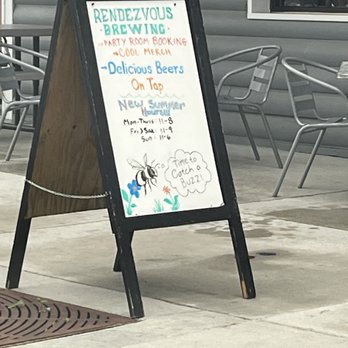 RENDEZVOUS
BREWING
→PARTY ROOM BOOKING
→COOL MERCH
→DELICIOUS BEERS
ON TAP
NEW SUMMER
HOURS!
MON-THURS: 11-8
FRI & SAT: 11-9
SUN: 11-6
TIME TO
CATCH A
BUZZ!